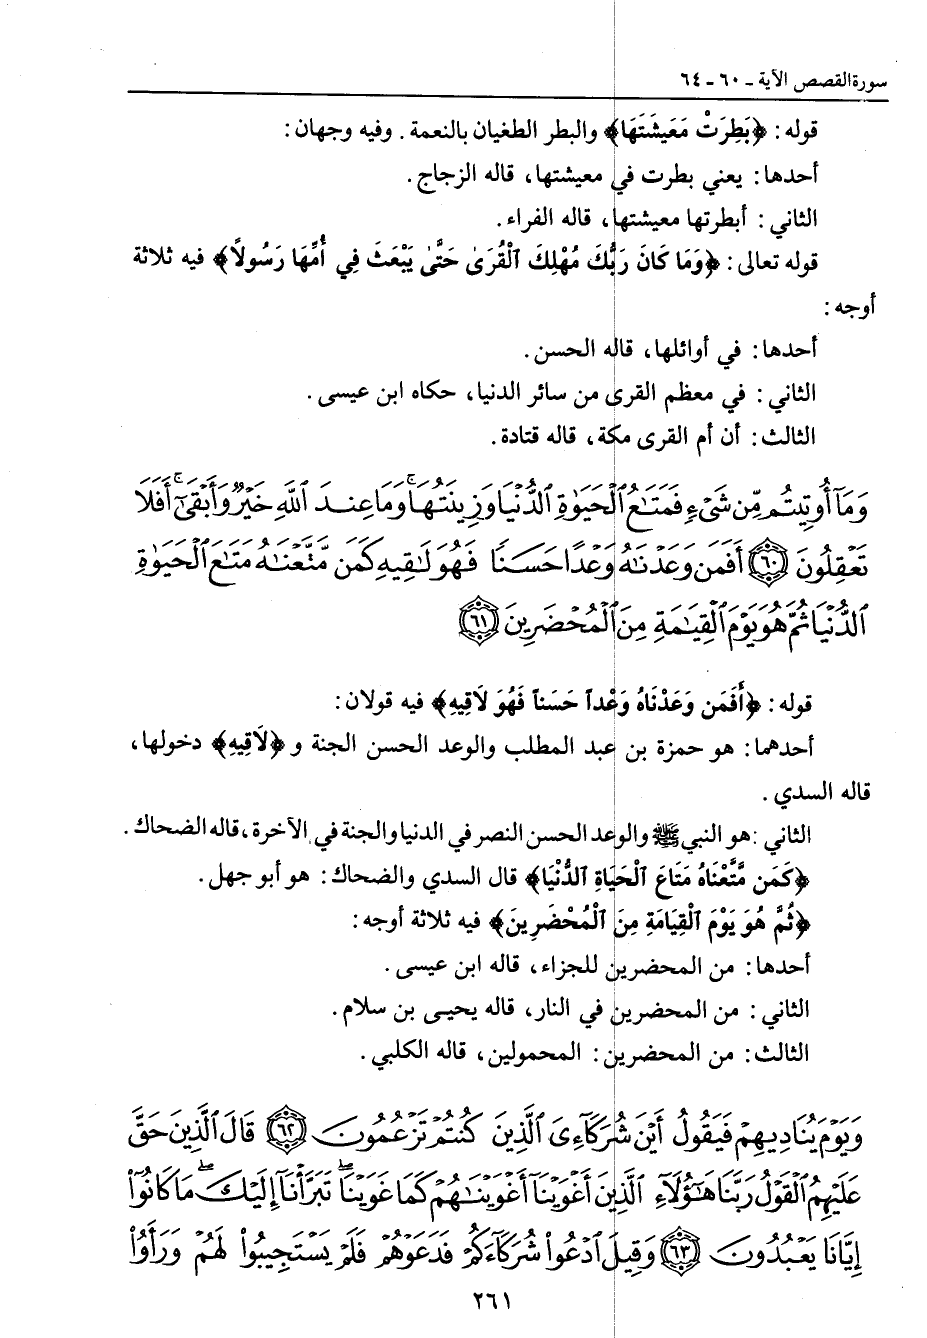 سورة القصص الآية ـ ٦٠ ـ ٦٤
قوله: ﴿بَطِرَتْ مَعِيشَتَهَا﴾ والبطر الطغيان بالنعمة. وفيه وجهان:
أحدها: يعني بطرت في معيشتها، قاله الزجاج.
الثاني: أبطرتها معيشتها، قاله الفراء.
قوله تعالى: ﴿وَمَا كَانَ رَبُّكَ مُهْلِكَ ٱلْقُرَىٰ حَتَّىٰ يَبْعَثَ فِي أُمِّهَا رَسُولاً﴾ فيه ثلاثة
أوجه:
أحدها: في أوائلها، قاله الحسن.
الثاني: في معظم القرى من سائر الدنيا، حكاه ابن عيسى.
الثالث: أن أم القرى مكة، قاله قتادة.
وَمَآ أُوتِيتُم مِّن شَىْءٍ فَمَتَٰعُ ٱلْحَيَوٰةِ ٱلدُّنْيَا وَزِينَتُهَا ۚ وَمَا عِندَ ٱللَّهِ خَيْرٌ وَأَبْقَىٰٓ ۚ أَفَلَا
تَعْقِلُونَ ٦٠ أَفَمَن وَعَدْنَٰهُ وَعْدًا حَسَنًا فَهُوَ لَٰقِيهِ كَمَن مَّتَّعْنَٰهُ مَتَٰعَ ٱلْحَيَوٰةِ
ٱلدُّنْيَا ثُمَّ هُوَ يَوْمَ ٱلْقِيَٰمَةِ مِنَ ٱلْمُحْضَرِينَ ٦١
قوله: ﴿أَفَمَن وَعَدْنَاهُ وَعْداً حَسَناً فَهُوَ لَاقِيهِ﴾ فيه قولان:
أحدهما: هو حمزة بن عبد المطلب والوعد الحسن الجنة و ﴿لَاقِيهِ﴾ دخولها،
قاله السدي.
الثاني: هو النبي ﷺ والوعد الحسن النصر في الدنيا والجنة في الآخرة، قاله الضحاك.
﴿كَمَن مَّتَّعْنَاهُ مَتَاعَ ٱلْحَيَاةِ ٱلدُّنْيَا﴾ قال السدي والضحاك: هو أبو جهل.
﴿ثُمَّ هُوَ يَوْمَ ٱلْقِيَامَةِ مِنَ ٱلْمُحْضَرِينَ﴾ فيه ثلاثة أوجه:
أحدها: من المحضرين للجزاء، قاله ابن عيسى.
الثاني: من المحضرين في النار، قاله يحيى بن سلام.
الثالث: من المحضرين: المحمولين، قاله الكلبي.
وَيَوْمَ يُنَادِيهِمْ فَيَقُولُ أَيْنَ شُرَكَآءِىَ ٱلَّذِينَ كُنتُمْ تَزْعُمُونَ ٦٢ قَالَ ٱلَّذِينَ حَقَّ
عَلَيْهِمُ ٱلْقَوْلُ رَبَّنَا هَٰٓؤُلَآءِ ٱلَّذِينَ أَغْوَيْنَآ أَغْوَيْنَٰهُمْ كَمَا غَوَيْنَا ۖ تَبَرَّأْنَآ إِلَيْكَ ۖ مَا كَانُوٓا۟
إِيَّانَا يَعْبُدُونَ ٦٣ وَقِيلَ ٱدْعُوا۟ شُرَكَآءَكُمْ فَدَعَوْهُمْ فَلَمْ يَسْتَجِيبُوا۟ لَهُمْ وَرَأَوُا۟
٢٦١